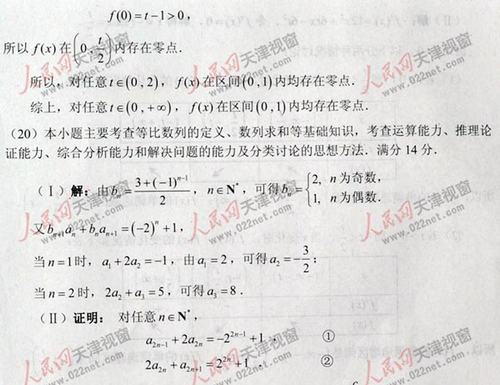 f(0)=t-1>0,
所以 f(x) 在 (0, t/2) 内存在零点.
所以, 对任意 t∈(0,2), f(x) 在区间 (0,1) 内均存在零点.
综上, 对任意 t∈(0,+∞), f(x) 在区间 (0,1) 内均存在零点.
(20) 本小题主要考查等比数列的定义、数列求和等基础知识, 考查运算能力、推理论
证能力、综合分析能力和解决问题的能力及分类讨论的思想方法. 满分 14 分.
(Ⅰ) 解: 由 b_n = (3+(-1)^{n-1})/2, n∈N*, 可得 b_n = {2, n 为奇数, 1, n 为偶数.
又 b_{n+1}a_n + b_n a_{n+1} = (-2)^n + 1,
当 n=1 时, a_1+2a_2=-1, 由 a_1=2, 可得 a_2=-3/2;
当 n=2 时, 2a_2+a_3=5, 可得 a_3=8.
(Ⅱ) 证明: 对任意 n∈N*,
a_{2n-1}+2a_{2n}=-2^{2n-1}+1, ①
2a_{2n}+a_{2n+1}=2^{2n}+1. ②
人民网 天津视窗
www.022net.com